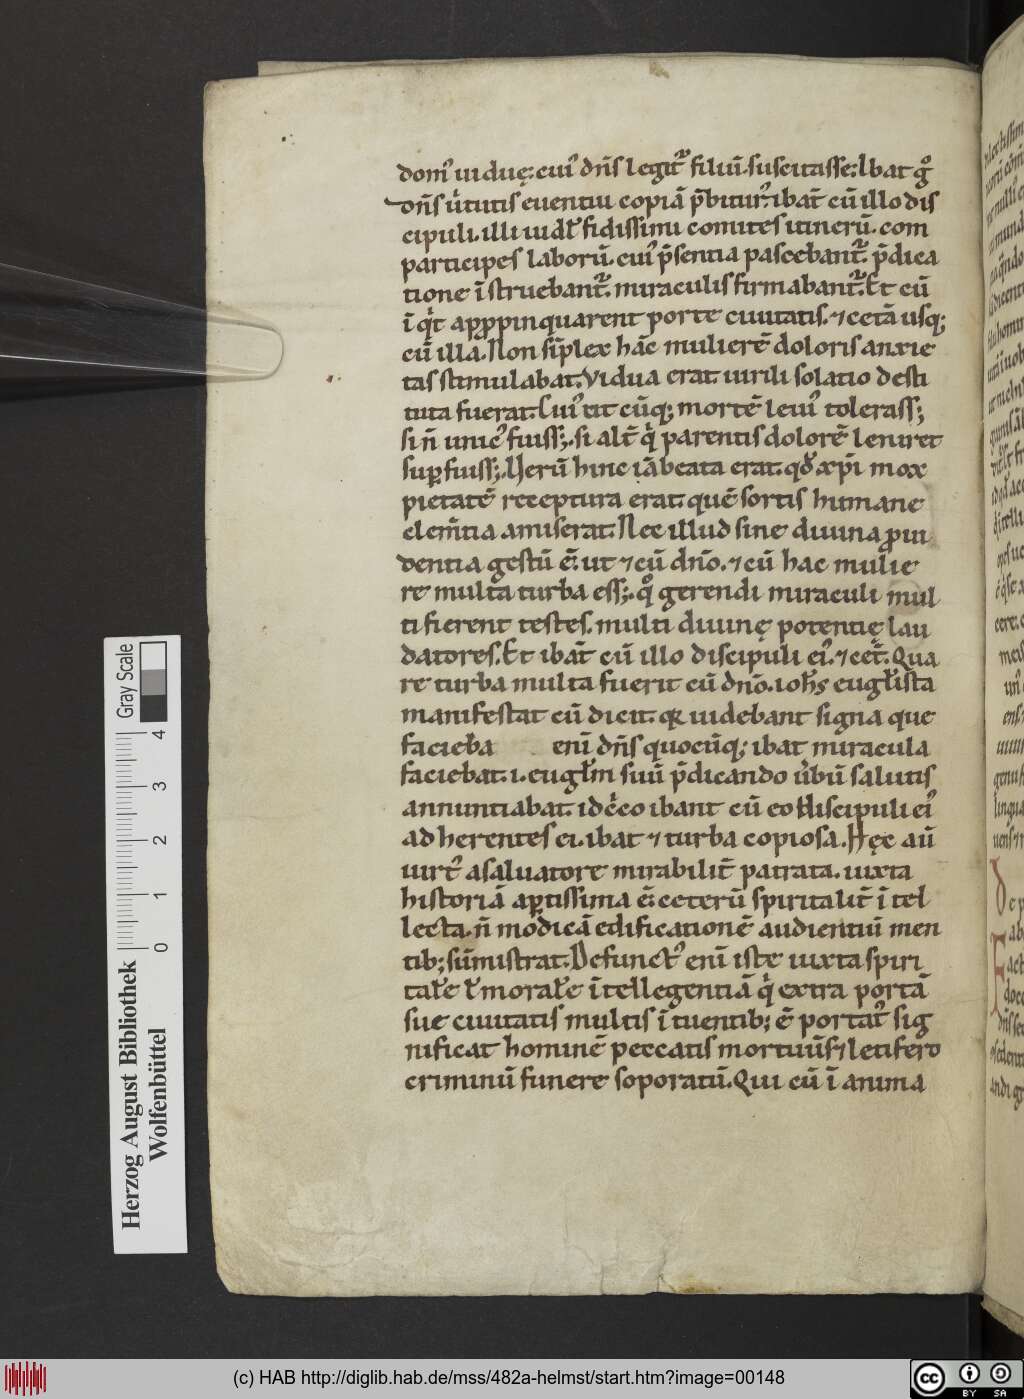 domꝰ uiduę. cuiꝰ dñs legit᷑ filiū suscitasse. Ibat gͦ
dñs uͥtutis euentiu copiā p̄bitur᷒. ibat̄ cū illo dis
cipuli. illi uidꝉ fidissimi comites itinerū. com
participes laborū. cuiꝰ p̄sentia pascebant᷑. p̄dica
tione īstruebant᷑. miraculis firmabant᷑. Et cū
ī qͥt appropinquarent porte ciuitatis. ⁊ cetā usq;
cū illa. Non sīplex hāc mulierē doloris anxie
tas stimulabat. Vidua erat. uirili solatio desti
tuta fuerat. Cuiꝰ tit cūq; mortē leuiꝰ tolerass;
si ñ unicꝰ fuiss;. si alt̄ qͥ parentis dolorē leniret
suꝑfuiss;. Uerū hinc iā beata erat. qđ xp̄i mox
pietatē receptura erat. quē sortis humane
clem̄tia amiserat. Nec illud sine diuina ꝓui
dentia gestū ē. ut ⁊ cū dn̄o. ⁊ cū hac mulie
re multa turba ess;. qͦ gerendi miraculi mul
ti fierent testes. multi diuinę potentię lau
datores. Et ibat̄ cū illo discipuli eiꝰ. ⁊ cet̄. Qua
re turba multa fuerit cū dn̄o. ioh̄s euglͥista
manifestat cū dicit. qꝛ uidebant signa que
facieba enī dñs quocūq; ibat miracula
faciebat. i. eugłm suū p̄dicando uͥbū salutis
annuntiabat. idcͥco ibant cū eo discipuli eiꝰ
adherentes ei. ibat ⁊ turba copiosa. Hęc aū
uirtꝰ a saluatore mirabilit̄ patrata. iuxta
historiā aꝑtissima ē. ceterū spiritalit̄ ī tel
lecta. ñ modicā edificationē audientiū men
tib; sūmistrat. Defunctꝰ enī iste iuxta spiri
tałe ł morałe ītellegentiā qͥ extra portā
sue ciuitatis multis ī tuentib; ē portatꝰ sig
nificat hominē peccatis mortuū. ⁊ letifero
criminū funere soporatū. Qui cū ī anima
Herzog August Bibliothek
Wolfenbüttel
Gray Scale
0 1 2 3 4
(c) HAB http://diglib.hab.de/mss/482a-helmst/start.htm?image=00148
cc BY SA